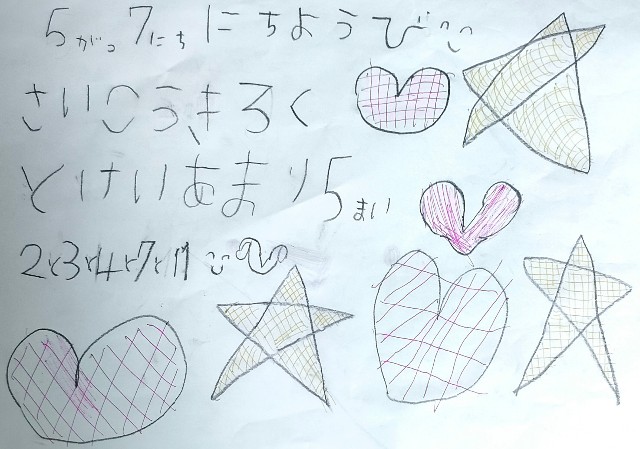 5がつ7にちにちようび
さいこうきろく
とけいあまり5まい
2と3と4と7と11